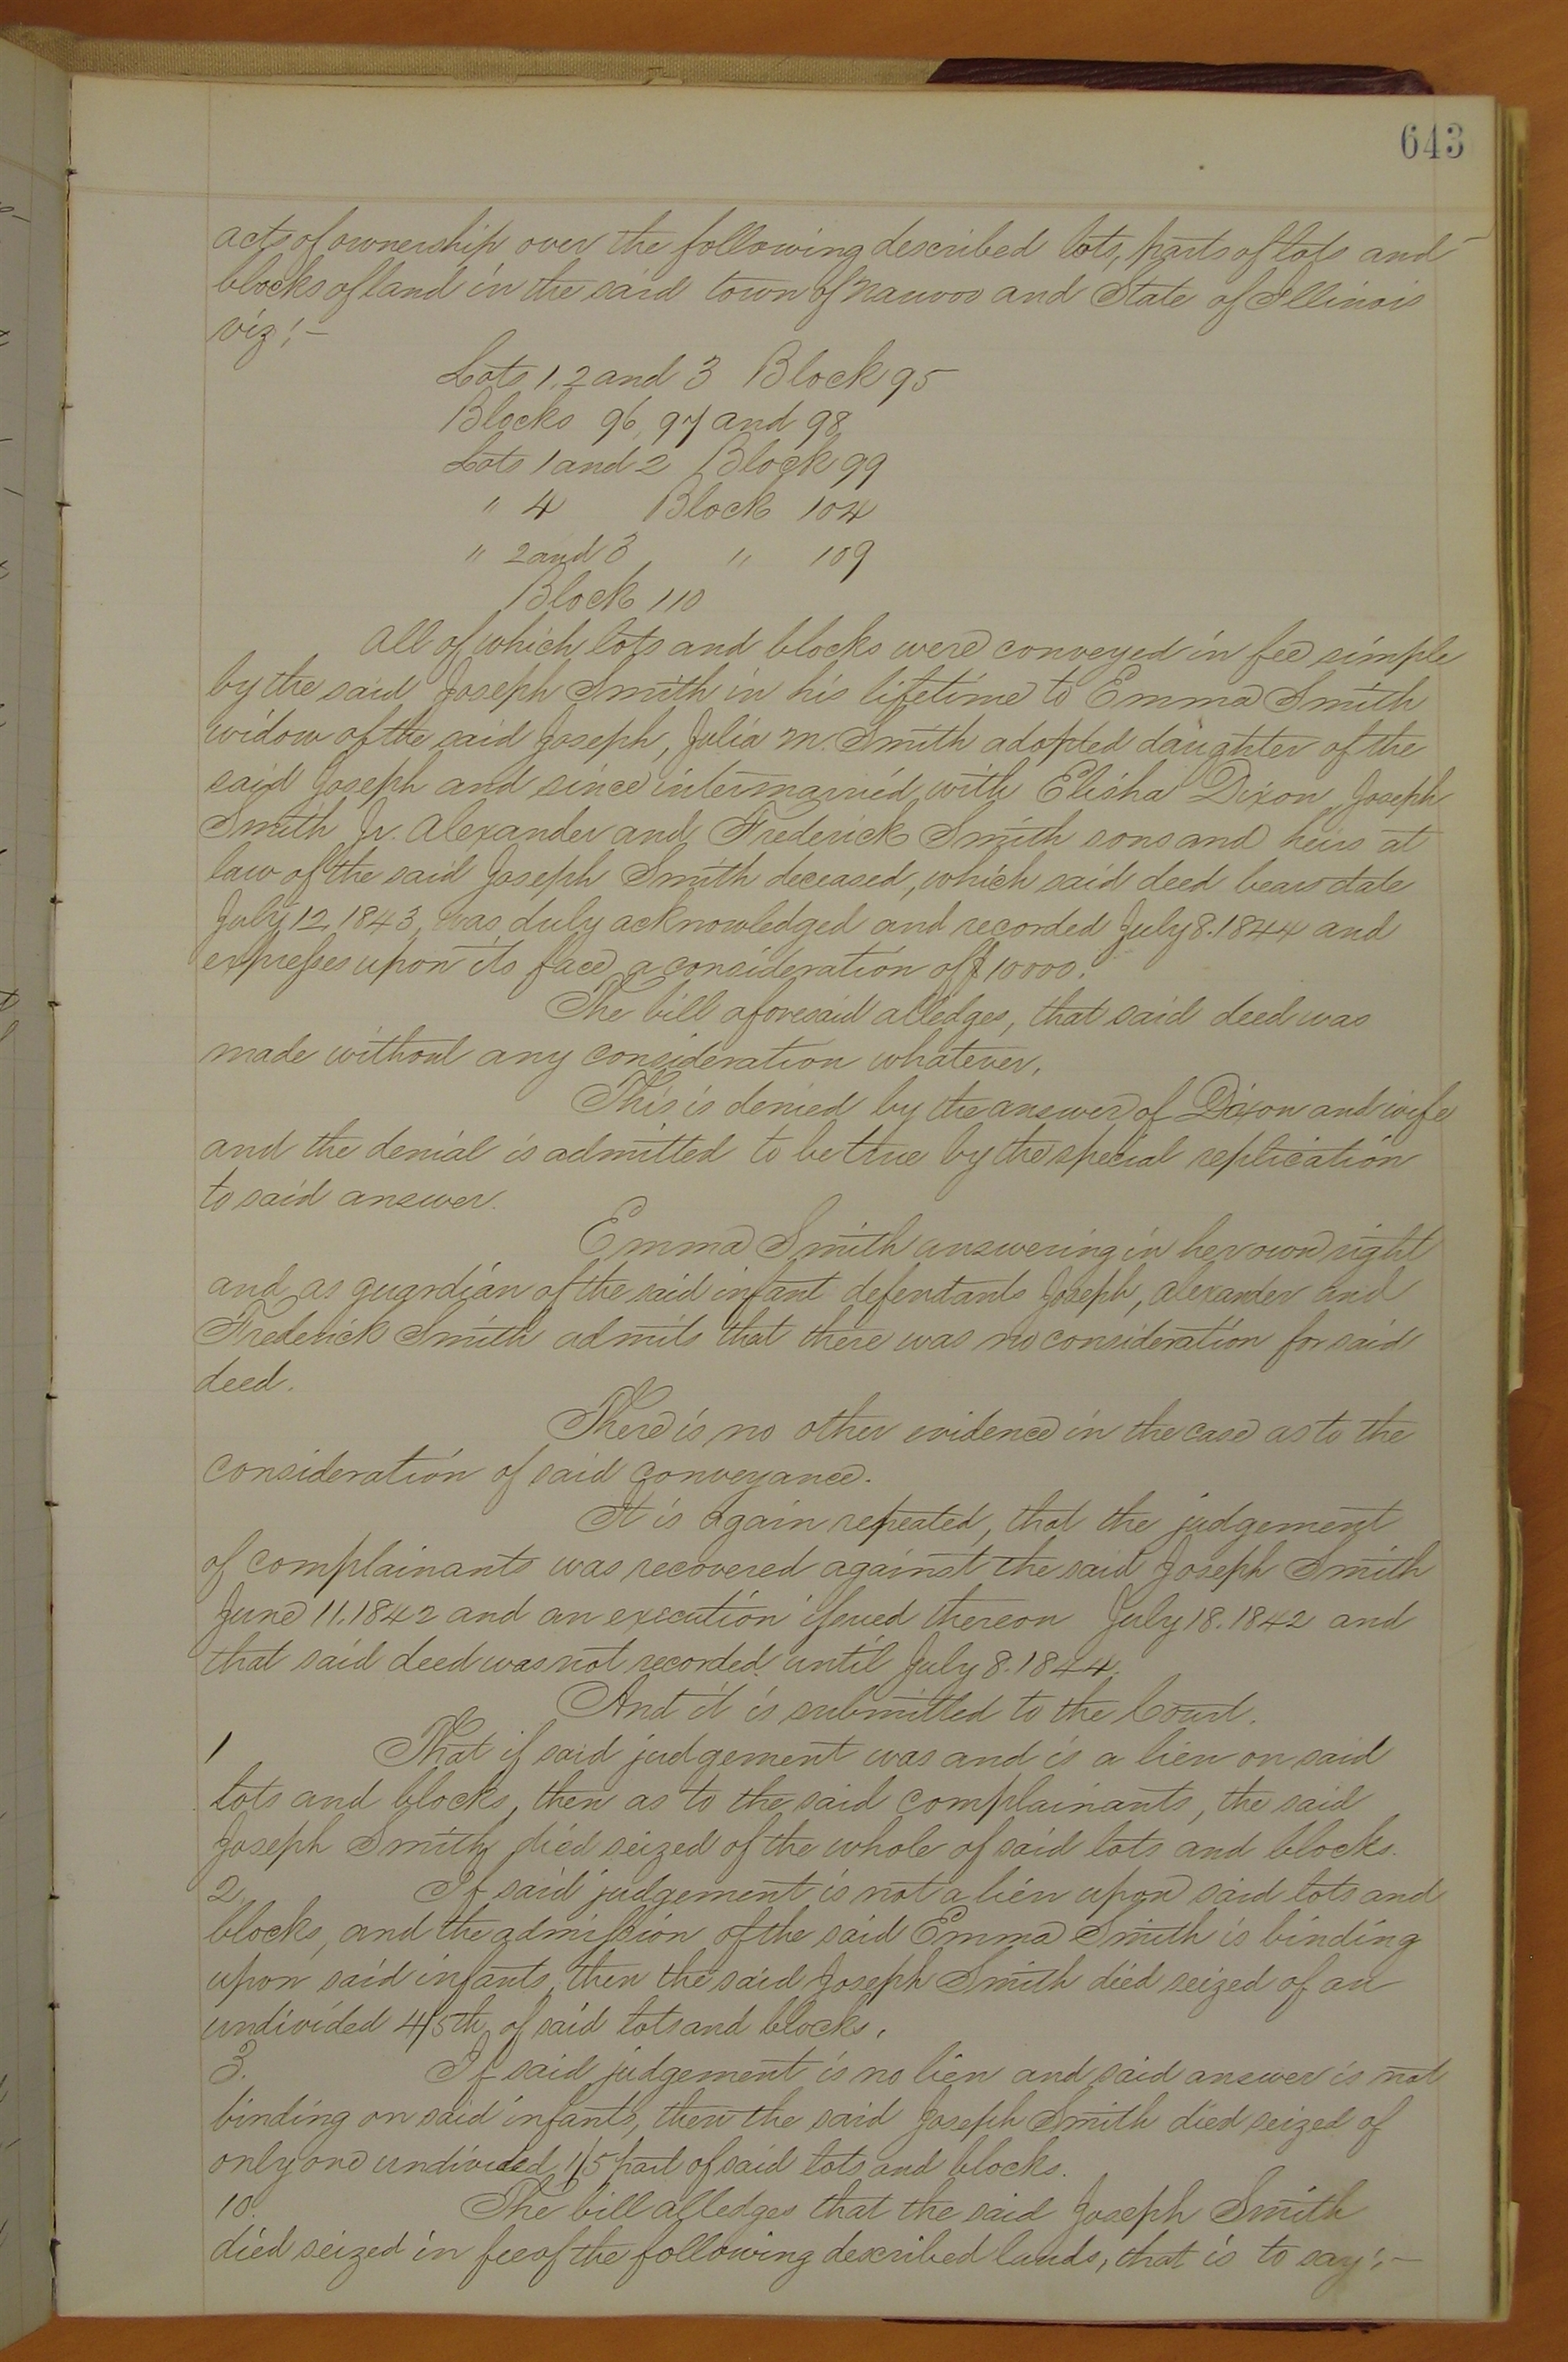 643
acts of ownership over the following described lots, parts of lots and
blocks of land in the said town of Nauvoo and State of Illinois
viz:—
Lots 1, 2 and 3 Block 95
Blocks 96, 97 and 98
Lots 1 and 2 Block 99
" 4 Block 104
" 2 and 3 " 109
Block 110
All of which lots and blocks were conveyed in fee simple
by the said Joseph Smith in his lifetime to Emma Smith
widow of the said Joseph, Julia M. Smith adopted daughter of the
said Joseph and since intermarried with Elisha Dixon, Joseph
Smith Jr. Alexander and Frederick Smith sons and heirs at
law of the said Joseph Smith deceased, which said deed bears date
July 12, 1843, was duly acknowledged and recorded July 8. 1844 and
expresses upon its face a consideration of $10000.
The bill aforesaid alledges, that said deed was
made without any consideration whatever.
This is denied by the answer of Dixon and wife
and the denial is admitted to be true by the special replication
to said answer.
Emma Smith answering in her own right
and as guardian of the said infant defendants Joseph, Alexander and
Frederick Smith admits that there was no consideration for said
deed.
There is no other evidence in the case as to the
consideration of said conveyance.
It is again repeated, that the judgement
of complainants was recovered against the said Joseph Smith
June 11. 1842 and an execution issued thereon July 18. 1842 and
that said deed was not recorded until July 8. 1844.
And it is submitted to the Court.
1 That if said judgement was and is a lien on said
lots and blocks, then as to the said complainants, the said
Joseph Smith died seized of the whole of said lots and blocks.
2. If said judgement is not a lien upon said lots and
blocks, and the admission of the said Emma Smith is binding
upon said infants, then the said Joseph Smith died seized of an
undivided 4/5th of said lots and blocks.
3. If said judgement is no lien and said answer is not
binding on said infants, then the said Joseph Smith died seized of
only one undivided 1/5 part of said lots and blocks.
10. The bill alledges that the said Joseph Smith
died seized in fee of the following described lands, that is to say:—